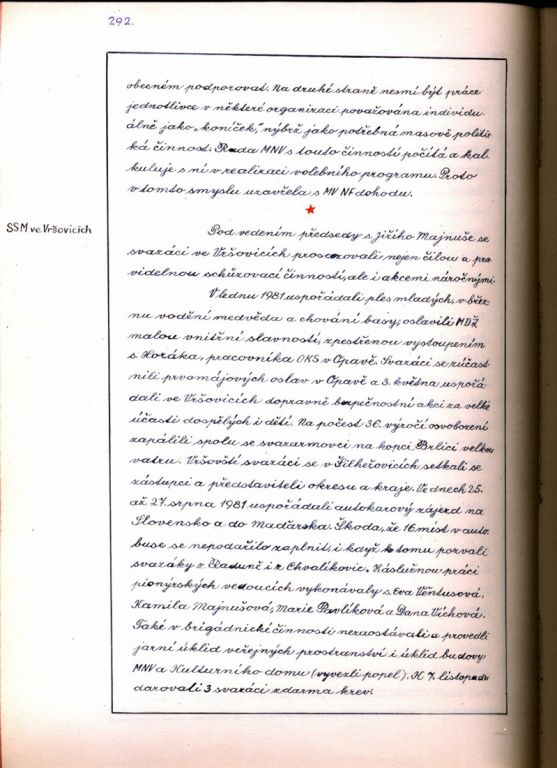 292.
obecném podporovat. Na druhé straně nesmí být práce
jednotlivce v některé organizaci považována individu
álně jako „koníček“, nýbrž jako potřebná masově politic
ká činnost. Rada MNV s touto činností počítá a kal
kuluje s ní v realizaci volebního programu. Proto
v tomto smyslu uzavřela s MV NF dohodu.
SSM ve Vršovicích
Pod vedením předsedy s. Jiřího Majnuše se
svazáci ve Vršovicích prosazovali nejen čilou a pra
videlnou schůzovací činností, ale i akcemi náročnými.
V lednu 1981 uspořádali ples mladých, v břez
nu vodění medvěda a chování basy, oslavili MDŽ
malou vnitřní slavností, zpestřenou vystoupením
s. Horáka, pracovníka OKS v Opavě. Svazáci se zúčast
nili prvomájových oslav v Opavě a 3. května uspořá
dali ve Vršovicích dopravně bezpečnostní akci za velké
účasti dospělých i dětí. Na počest 36. výročí osvobození
zapálili spolu se svazarmovci na kopci Brlici velkou
vatru. Vršovští svazáci se v Šilheřovicích, setkali se
zástupci a představiteli okresu a kraje. Ve dnech 25.
až 27. srpna 1981 uspořádali autokarový zájezd na
Slovensko a do Maďarska. Škoda, že 16 míst v auto
buse se nepodařilo zaplnit, i když k tomu pozvali
svazáky z Raduně i z Chvalíkovic. Záslužnou práci
pionýrských vedoucích vykonávaly s. Eva Věntusová,
Kamila Majnušová, Marie Pavlíková a Dana Víchová.
Také v brigádnické činnosti nezaostávali a provedli
jarní úklid veřejných prostranství i úklid budovy
MNV a Kulturního domu (vyvezli popel). K 7. listopadu
darovali 3 svazáci zdarma krev.